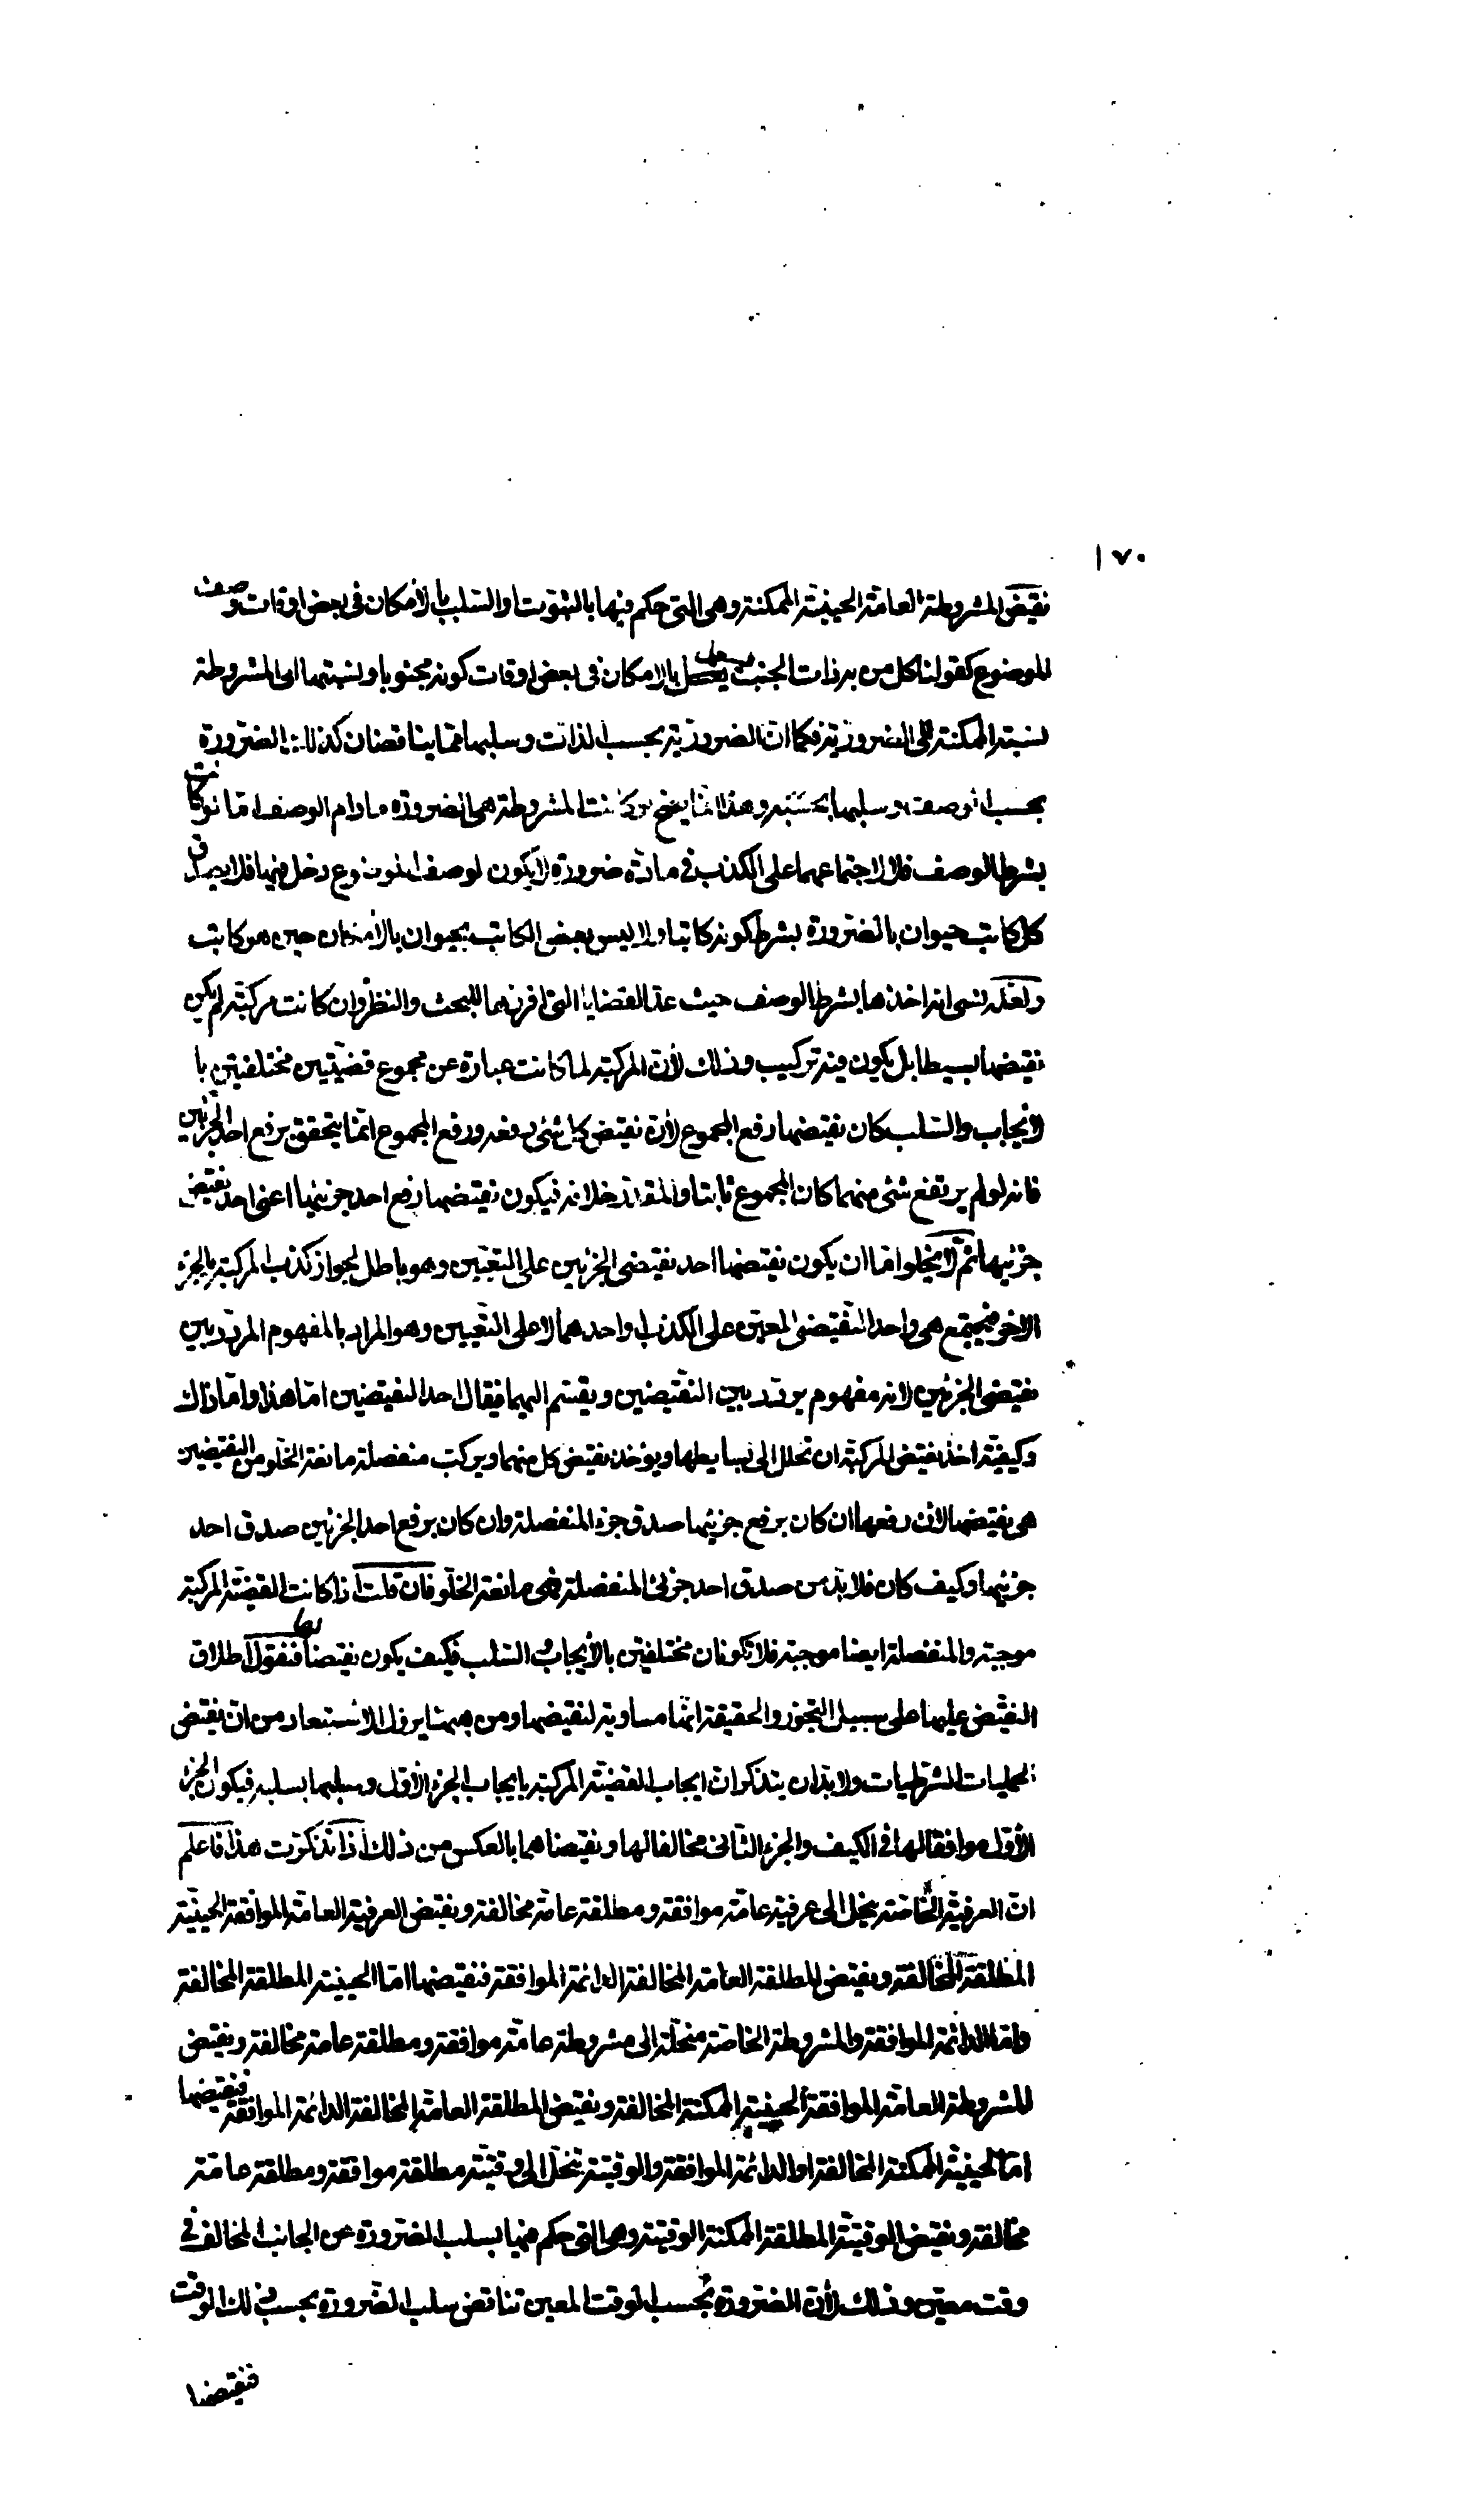 ١٧٠
نقيض المشروطة العامة الحينية الممكنة وهى التى حكم فيها بالثبوت او السلب بالأمكان فى بعض اوقات وصف
الموضوع كقولنا كل من به ذات الجنب يسعل بالامكان فى بعض اوقات كونه مجنوبا ونسبتها الى المشروطة
نسبة الممكنة الى الضرورية فكما ان الضرورية بحسب الذات وسلبها مما يتناقضان كذلك الضرورة
بحسب الوصف وسلبها بحسبه وهذا انما يصح لو كانت المشروطة هى الضرورة مادام الوصف اما لو كانت
بشرط الوصف فلا لاجتماعهما على الكذب فى مادة ضرورة لا يكون لوصف الموضوع دخل فيها فلا يصدق
كل كاتب حيوان بالضرورة بشرط كونه كاتبا ولا ليس بعض الكاتب بحيوان بالأمكان حين هو كاتب
ولعله نسى انه اخذها بشرط الوصف حيث عد القضايا التى افرزها للبحث والنظر وان كانت مركبة لم يكن
نقيضها بسيطا بل يكون فيه تركيب وذلك لأن المركبة لما كانت عبارة عن مجموع قضيتين مختلفتين با
لأيجاب والسلب كان نقيضها رفع المجموع لأن نقيض كل شئ رفعه ورفع المجموع انما يتحقق برفع احد الجزئين
فانه لو لم يرتفع شئ منهما كان المجموع ثابتا والمقدر خلافه فيكون نقيضها رفع احد جزئيها اعنى احد نقيض
جزئيها ثم لا يخلو اما ان يكون نقيضها احد نقيضى الجزئين على التعيين وهو باطل لجواز كذب المركبة بالجزء
الاخر فيجتمع هى واحد النقيضى المعين على الكذب او احدهما لا على التعيين وهو المراد بالمفهوم المردد بين
نقيضى الجزئين لانه مفهوم يردد بين النقيضين ويقسم اليهما فيقال احد النقيضين اما هذا واما ذاك
وكيفية اخذ نقيض المركبة ان تحلل الى بسايطها ويؤخذ نقيض كل منهما ويركب منفصلة مانعة الخلو من النقيضين
هى نقيضها لأن رفعها ان كان برفع جزئيها صدق جزء المنفصلة وان كان برفع احد الجزئين صدق احد
جزئيها وكيف كان فلا بد من صدق احد جزئى المنفصلة فهى مانعة الخلو فان قلت اذا كانت القضية المركبة
موجبة والمنفصلة ايضا موجبة فلا تكونان مختلفتين بالأيجاب والسلب فكيف يكون نقيضا لها فنقول اطلاق
النقيض عليها على سبيل التجوز والحقيقة انها مساوية لنقيضها ومن ههنا يزول الاستبعاد من ان نقيض
الحمليات الشرطيات ولا بد ان يتذكر ان ايجاب القضية المركبة بايجاب الجزء الأول وسلبها بسلبه فيكون الجزء
الأول موافقا لها فى الكيف والجزء الثانى مخالفا لها ونقيضاهما بالعكس من ذلك اذا تذكرت هذا فاعلم
ان العرفية الخاصة تنحل الى عرفية عامة موافقة ومطلقة عامة مخالفة ونقيض العرفية العامة الموافقة الحينية
المطلقة المخالفة ونقيض المطلقة العامة المخالفة الدائمة الموافقة فنقيضها اما الحينية المطلقة المخالفة
واما الدائمة الموافقة والمشروطة الخاصة منحلة الى مشروطة عامة موافقة ومطلقة عامة مخالفة ونقيض
المشروطة العامة الموافقة الحينية الممكنة المخالفة ونقيض المطلقة العامة المخالفة الدائمة الموافقة فنقيضها
اما الحينية الممكنة المخالفة او الدائمة الموافقة والوقتية تنحل الى وقتية مطلقة موافقة ومطلقة عامة
مخالفة ونقيض الوقتية المطلقة الممكنة الوقتية وهى التى حكم فيها بسلب الضرورة عن الجانب المخالف فى
وقت معين وذلك لأن الضرورة بحسب الوقت المعين تناقض سلب الضرورة بحسب ذلك الوقت
فنقيضها